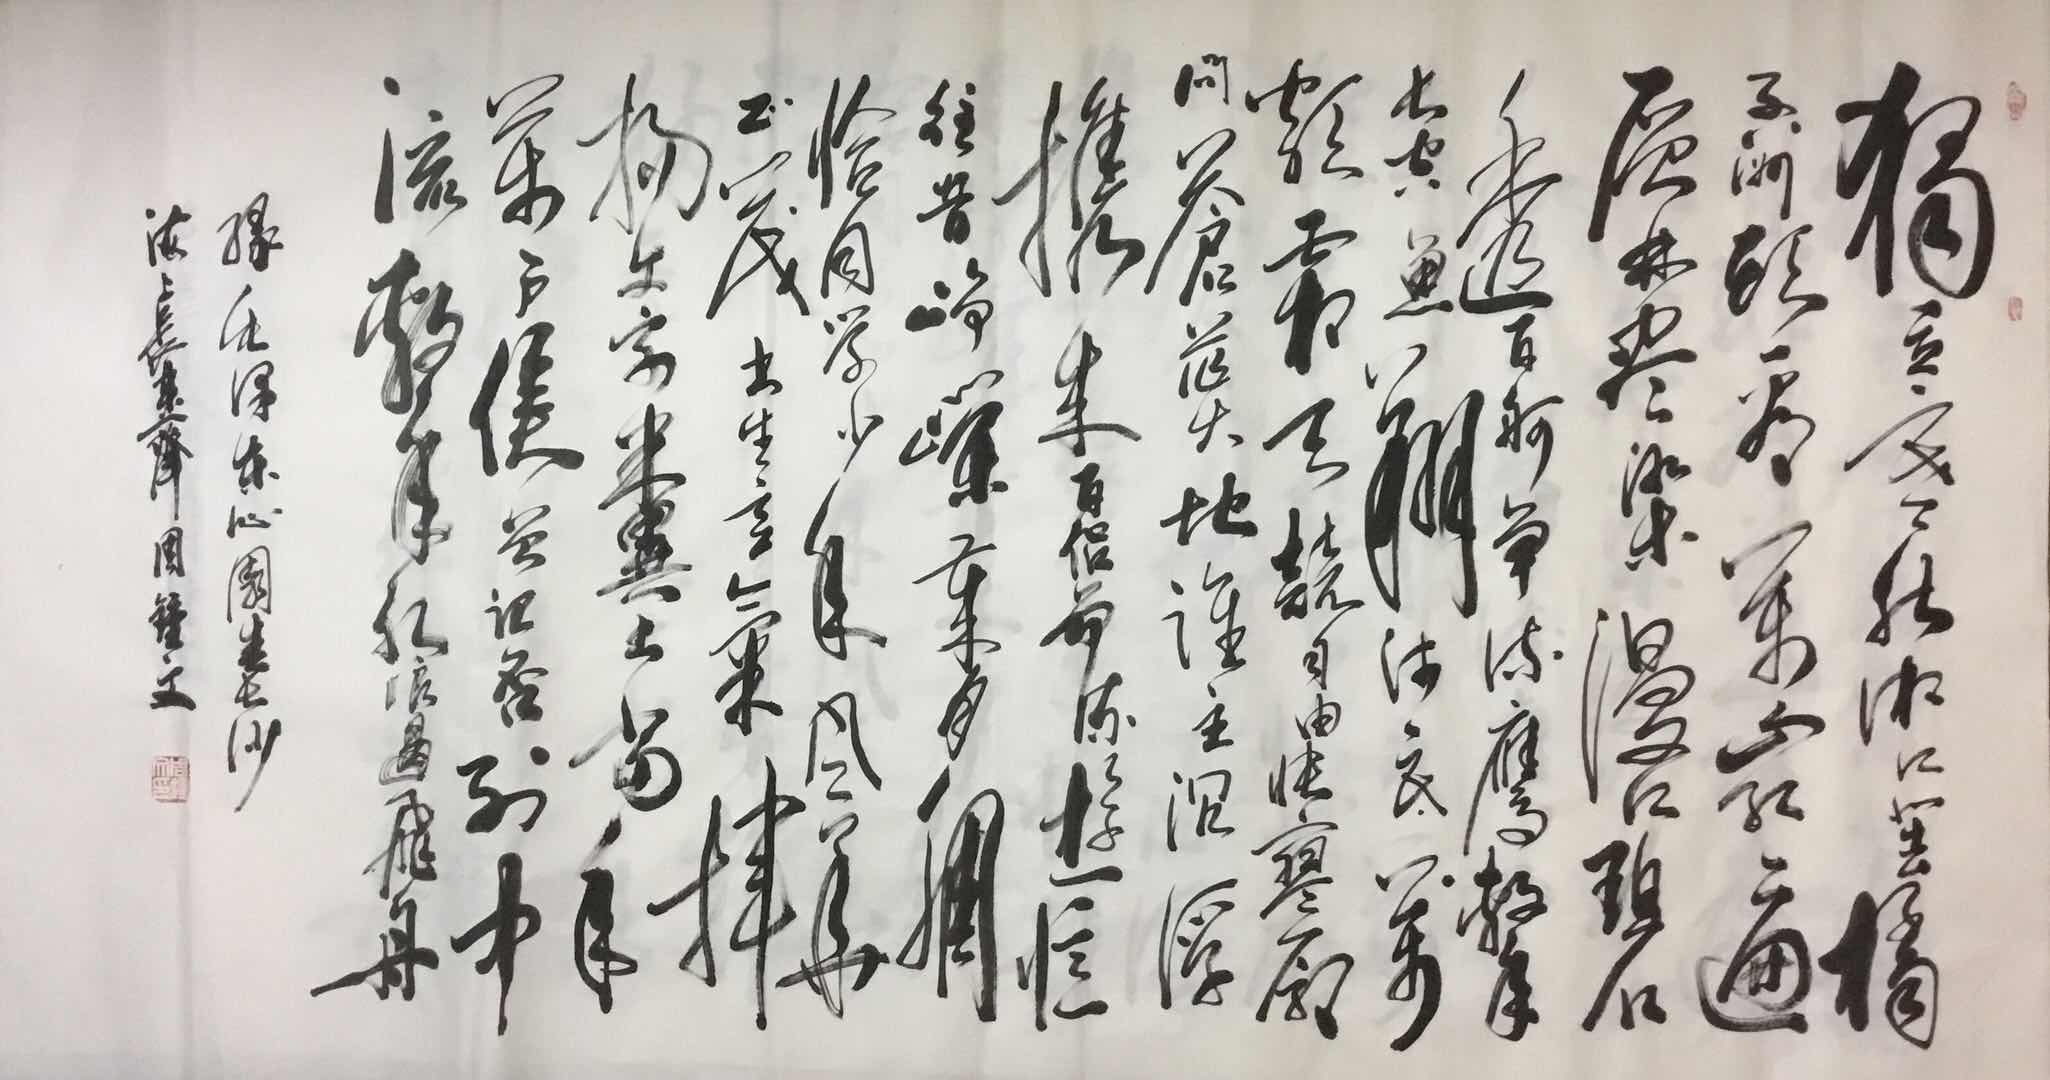 獨立寒秋湘江北去橘
子洲頭看萬山紅遍
層林盡染漫江碧
透百舸爭流鷹擊
長空魚翔淺底萬
類霜天競自由悵寥廓
問蒼茫大地誰主沉浮
攜來百侶曾游憶
往昔崢嶸歲月稠
恰同學少年風華
正茂書生意氣揮
揚文字糞土當年
萬戶侯曾記否到中
流擊水浪遏飛舟
錄毛澤東沁園春長沙
海上周鐘文